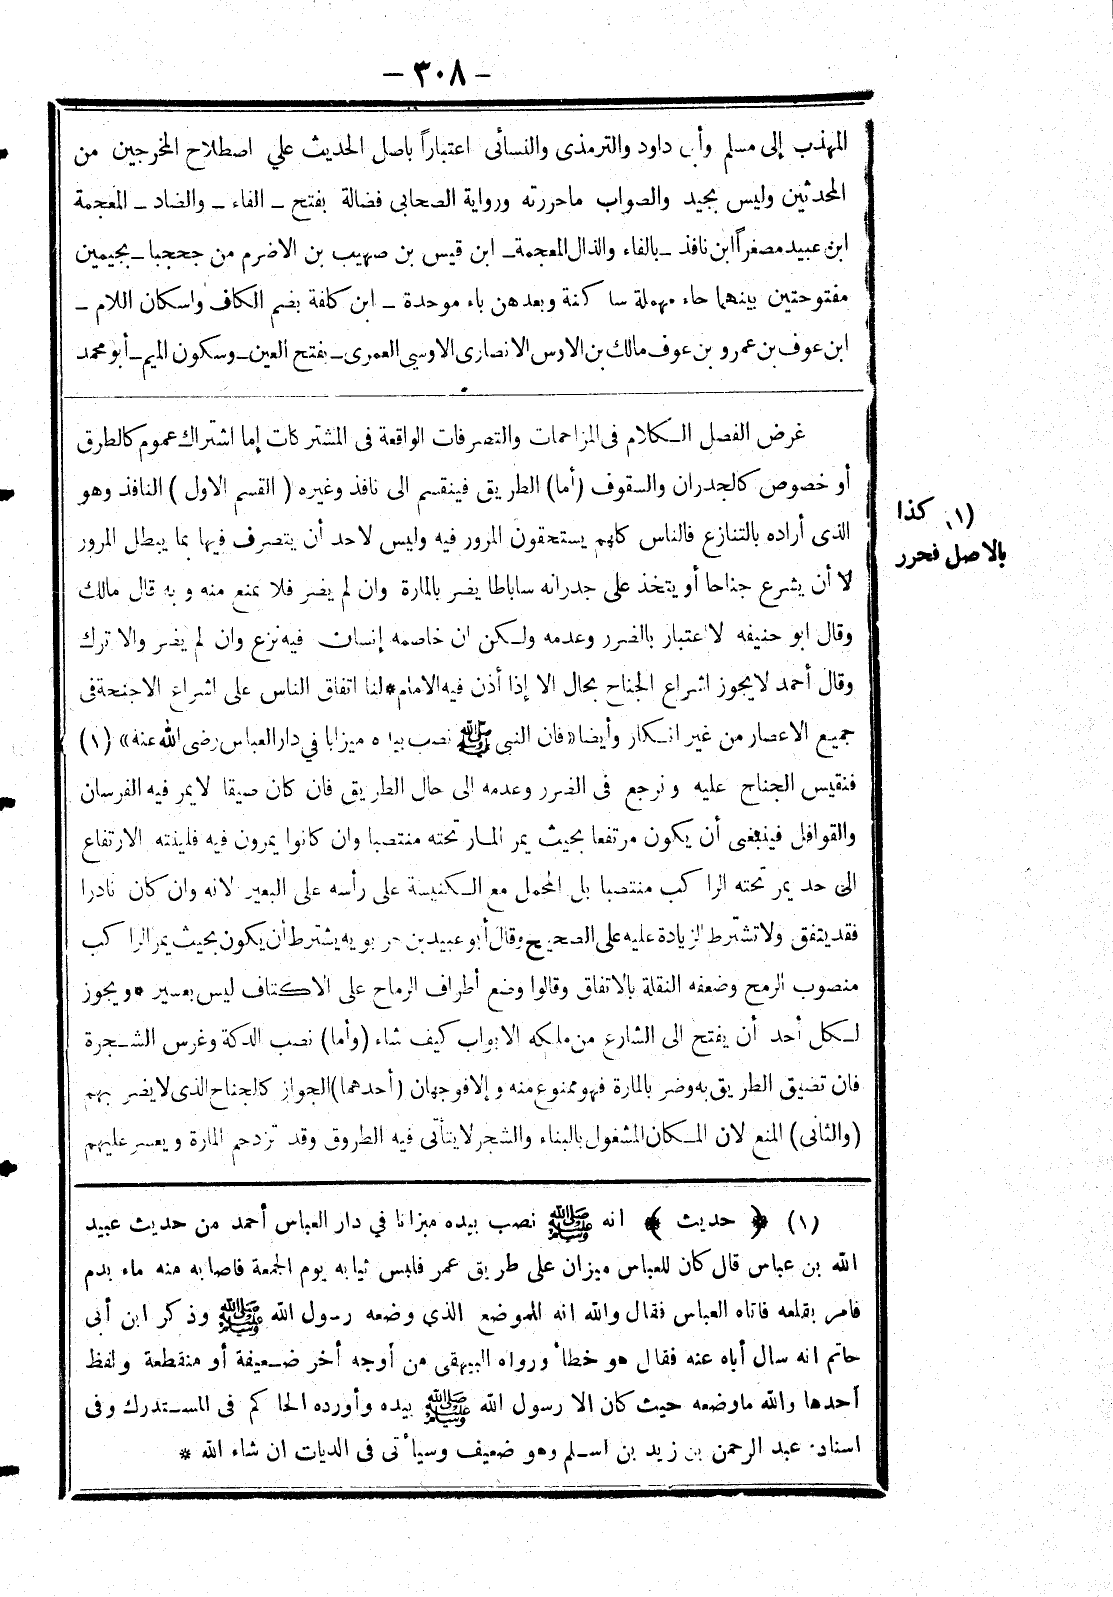 — ٣٠٨ —
المهذب إلى مسلم وأبى داود والترمذى والنسائى اعتباراً باصل الحديث علي اصطلاح المخرجين من
المحدثين وليس بجيد والصواب ماحررته ورواية الصحابى فضالة بفتح ـ الفاء ـ والضاد ـ المعجمة
ابن عبيد مصغراً ابن نافذ ـ بالفاء والذال المعجمة ـ ابن قيس بن صهيب بن الاضرم من جحجبا ـ بجيمين
مفتوحتين بينهما حاء مهملة ساكنة وبعدهن باء موحدة ـ ابن كلفة بضم الكاف واسكان اللام ـ
ابن عوف بن عمرو بن عوف مالك بن الاوس الانصارى الاوسي العمرى ـ بفتح العين ـ وسكون الميم ـ أبو محمد
غرض الفصل الكلام فى المزاحمات والتصرفات الواقعة فى المشتركات إما اشتراك عموم كالطرق
أو خصوص كالجدران والسقوف (أما) الطريق فينقسم الى نافذ وغيره ( القسم الاول ) النافذ وهو
الذى أراده بالتنازع فالناس كلهم يستحقون المرور فيه وليس لاحد أن يتصرف فيها بما يبطل المرور
لا أن يشرع جناحا أو يتخذ على جدرانه ساباطا يضر بالمارة وان لم يضر فلا يمنع منه وبه قال مالك
وقال ابو حنيفه لا اعتبار بالضرر وعدمه ولكن ان خاصمه إنسان فيه نزع وان لم يضر والا ترك
وقال أحمد لا يجوز اشراع الجناح بحال الا إذا أذن فيه الامام * لنا اتفاق الناس على اشراع الاجنحة فى
جميع الاعصار من غير انكار وأيضا « فان النبى ﷺ نصب بيده ميزابا في دار العباس رضى الله عنه » (١)
فنقيس الجناح عليه ونرجع فى الضرر وعدمه الى حال الطريق فان كان ضيقا لا يمر فيه الفرسان
والقوافل فينبغى أن يكون مرتفعا بحيث يمر المار تحته منتصبا وان كانوا يمرون فيه فلينته الارتفاع
الى حد يمر تحته الراكب منتصبا بل المحمل مع الكنيسة على رأسه على البعير لانه وان كان نادرا
فقد يتفق ولا تشترط الزيادة عليه على الصحيح وقال أبو عبيد بن حربويه يشترط أن يكون بحيث يمر الراكب
منصوب الرمح وضعفه النقلة بالاتفاق وقالوا وضع أطراف الرماح على الاكتاف ليس بعسير * ويجوز
لكل أحد أن يفتح الى الشارع من ملكه الابواب كيف شاء (وأما) نصب الدكة وغرس الشجرة
فان تضيق الطريق به وضر بالمارة فهو ممنوع منه وإلا فوجهان (أحدهما) الجواز كالجناح الذى لا يضر بهم
(والثانى) المنع لان المكان المشغول بالبناء والشجر لا يتأتى فيه الطروق وقد تزدحم المارة ويعسر عليهم
(١) كذا
بالاصل فحرر
(١) ﴿ حديث ﴾ انه ﷺ نصب بيده ميزانا في دار العباس أحمد من حديث عبيد
الله بن عباس قال كان للعباس ميزان على طريق عمر فلبس ثيابه يوم الجمعة فاصابه منه ماء بدم
فامر بقلعه فاتاه العباس فقال والله انه للموضع الذي وضعه رسول الله ﷺ وذكر ابن أبى
حاتم انه سال أباه عنه فقال هو خطأ ورواه البيهقى من أوجه أخر ضعيفة أو منقطعة ولفظ
أحدها والله ماوضعه حيث كان الا رسول الله ﷺ بيده وأورده الحاكم فى المستدرك وفى
اسناده عبد الرحمن بن زيد بن اسلم وهو ضعيف وسيأتى فى الديات ان شاء الله *